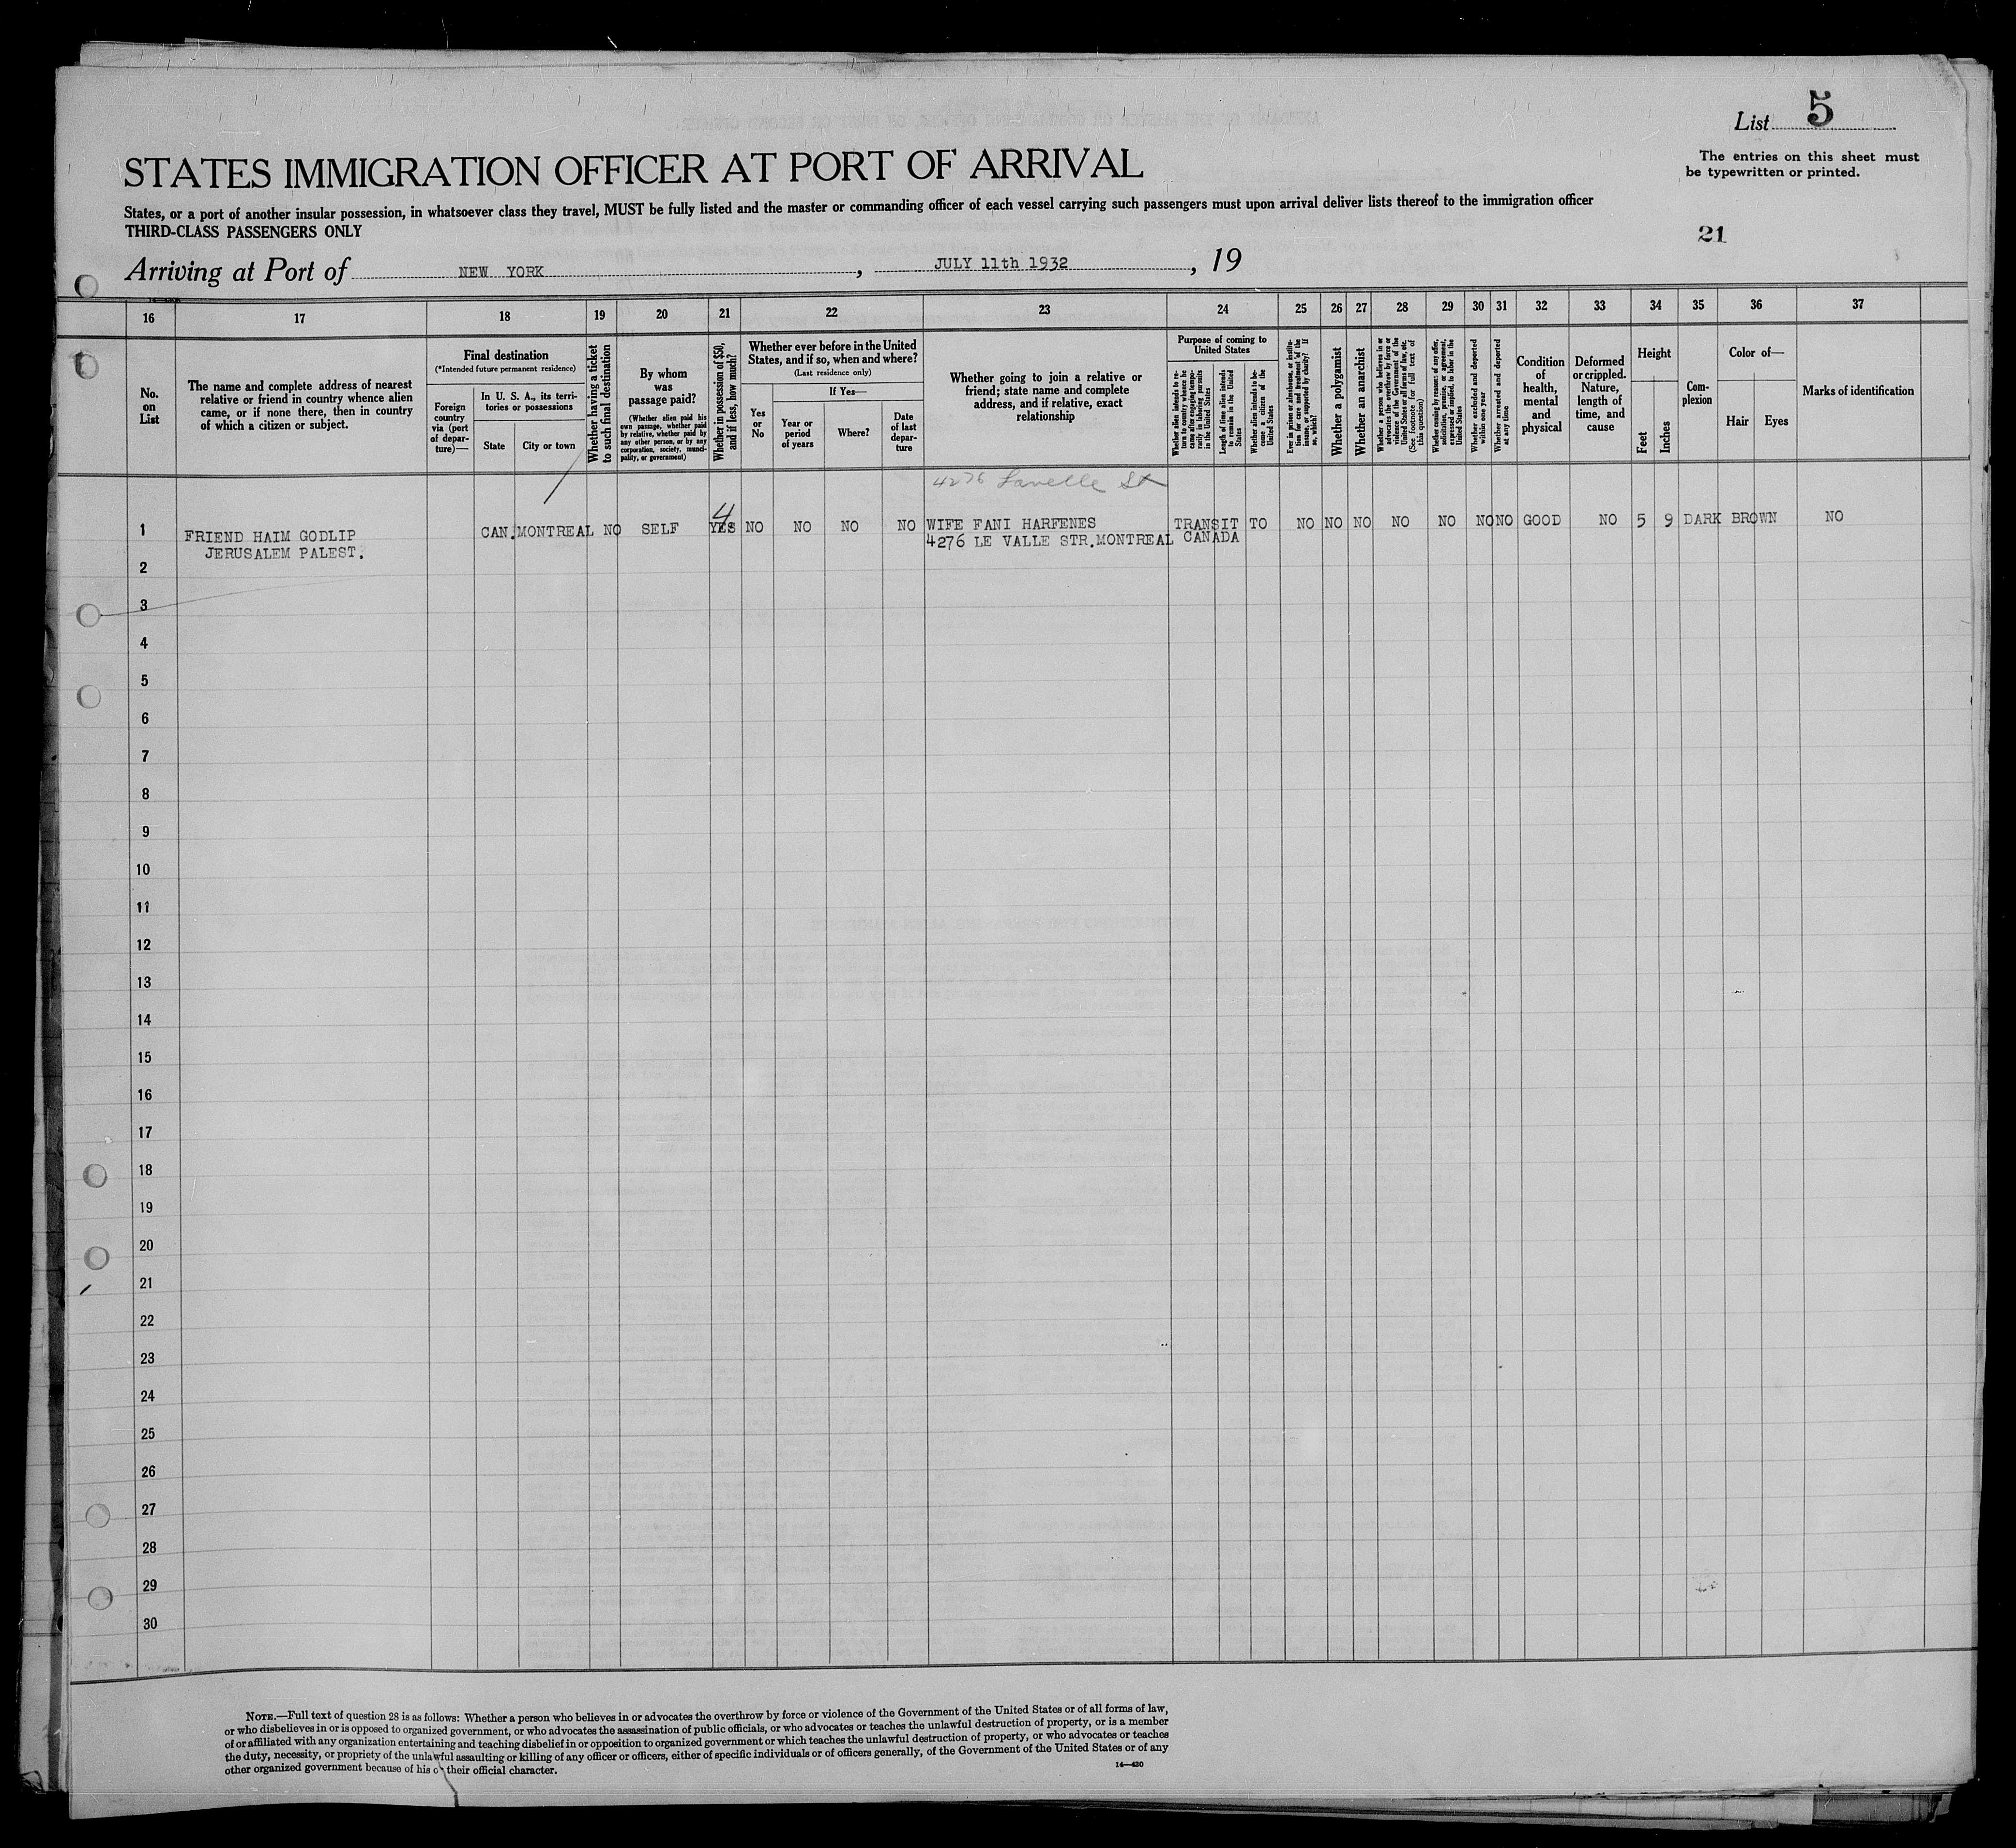 List 5
The entries on this sheet must
be typewritten or printed.
STATES IMMIGRATION OFFICER AT PORT OF ARRIVAL
States, or a port of another insular possession, in whatsoever class they travel, MUST be fully listed and the master or commanding officer of each vessel carrying such passengers must upon arrival deliver lists thereof to the immigration officer
THIRD-CLASS PASSENGERS ONLY
21
Arriving at Port of NEW YORK, JULY 11th 1932, 19
16 17 18 19 20 21 22 23 24 25 26 27 28 29 30 31 32 33 34 35 36 37
No.
on
List
The name and complete address of nearest
relative or friend in country whence alien
came, or if none there, then in country
of which a citizen or subject.
Final destination
(*Intended future permanent residence)
Foreign
country
via (port
of depar-
ture)—
In U. S. A., its terri-
tories or possessions
State
City or town
Whether having a ticket
to such final destination
By whom
was
passage paid?
(Whether alien paid his
own passage, whether paid
by relative, whether paid by
any other person, or by any
corporation, society, munici-
pality, or government)
Whether in possession of $50,
and if less, how much?
Whether ever before in the United
States, and if so, when and where?
(Last residence only)
Yes
or
No
If Yes—
Year or
period
of years
Where?
Date
of last
depar-
ture
Whether going to join a relative or
friend; state name and complete
address, and if relative, exact
relationship
Purpose of coming to
United States
Whether alien intends to re-
turn to country whence he
came after engaging tempo-
rarily in laboring pursuits
in the United States
Length of time alien intends
to remain in the United
States
Whether alien intends to be-
come a citizen of the
United States
Ever in prison or almshouse, or institu-
tion for care and treatment of the
insane, or supported by charity? If
so, which?
Whether a polygamist
Whether an anarchist
Whether a person who believes in or
advocates the overthrow by force or
violence of the Government of the
United States or all forms of law, etc.
(See footnote for full text of
this question)
Whether coming by reason of any offer,
solicitation, promise, or agreement,
expressed or implied, to labor in the
United States
Whether excluded and deported
within one year
Whether arrested and deported
at any time
Condition
of
health,
mental
and
physical
Deformed
or crippled.
Nature,
length of
time, and
cause
Height
Feet
Inches
Com-
plexion
Color of—
Hair
Eyes
Marks of identification
4276 Lavelle St
4
1 FRIEND HAIM GODLIP CAN. MONTREAL NO SELF YES NO NO NO NO WIFE FANI HARFENES TRANSIT TO NO NO NO NO NO NO NO GOOD NO 5 9 DARK BROWN NO
JERUSALEM PALEST. 4276 LE VALLE STR. MONTREAL CANADA
2
3
4
5
6
7
8
9
10
11
12
13
14
15
16
17
18
19
20
21
22
23
24
25
26
27
28
29
30
NOTE.—Full text of question 28 is as follows: Whether a person who believes in or advocates the overthrow by force or violence of the Government of the United States or of all forms of law,
or who disbelieves in or is opposed to organized government, or who advocates the assassination of public officials, or who advocates or teaches the unlawful destruction of property, or is a member
of or affiliated with any organization entertaining and teaching disbelief in or opposition to organized government or which teaches the unlawful destruction of property, or who advocates or teaches
the duty, necessity, or propriety of the unlawful assaulting or killing of any officer or officers, either of specific individuals or of officers generally, of the Government of the United States or of any
other organized government because of his or their official character.
14—430